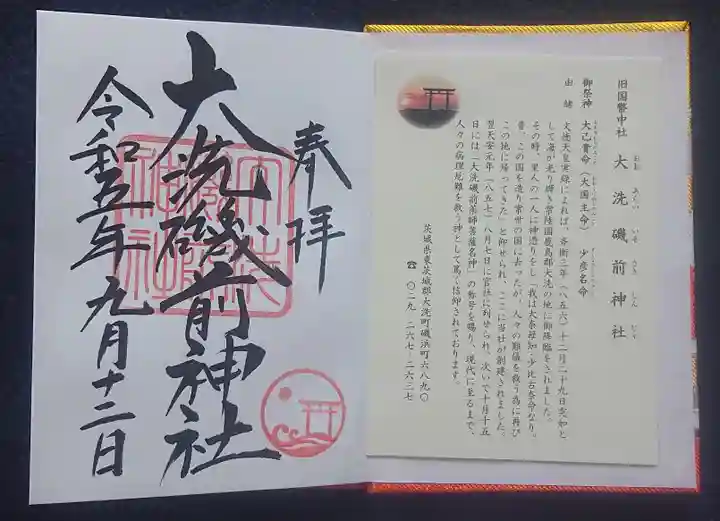 奉拝
大洗磯前神社
令和五年九月十二日
旧国幣中社 大洗磯前神社
おお あらい いそ さき じん じゃ
御祭神 大己貴命(大国主命) 少彦名命
由緒 文徳天皇実録によれば、斉衡三年(八五六)十二月二十九日夜如と
して海が光り輝き常陸国鹿島郡大洗の地に御降臨をされました。
その時、里人の一人に神憑りをし「我は大奈母知・少比古奈命なり。
昔、この国を造り常世の国に去ったが、人々の難儀を救う為に再び
この地に帰ってきた」と仰せられ、ここに当社が創建されました。
翌天安元年(八五七)八月七日に官社に列せられ、次いで十月十五
日には「大洗磯前薬師菩薩名神」の称号を賜り、現代に至るまで、
人々の病理厄難を救う神として篤く信仰されております。
茨城県東茨城郡大洗町磯浜町六八九〇
☎ 〇二九-二六七-二六三七